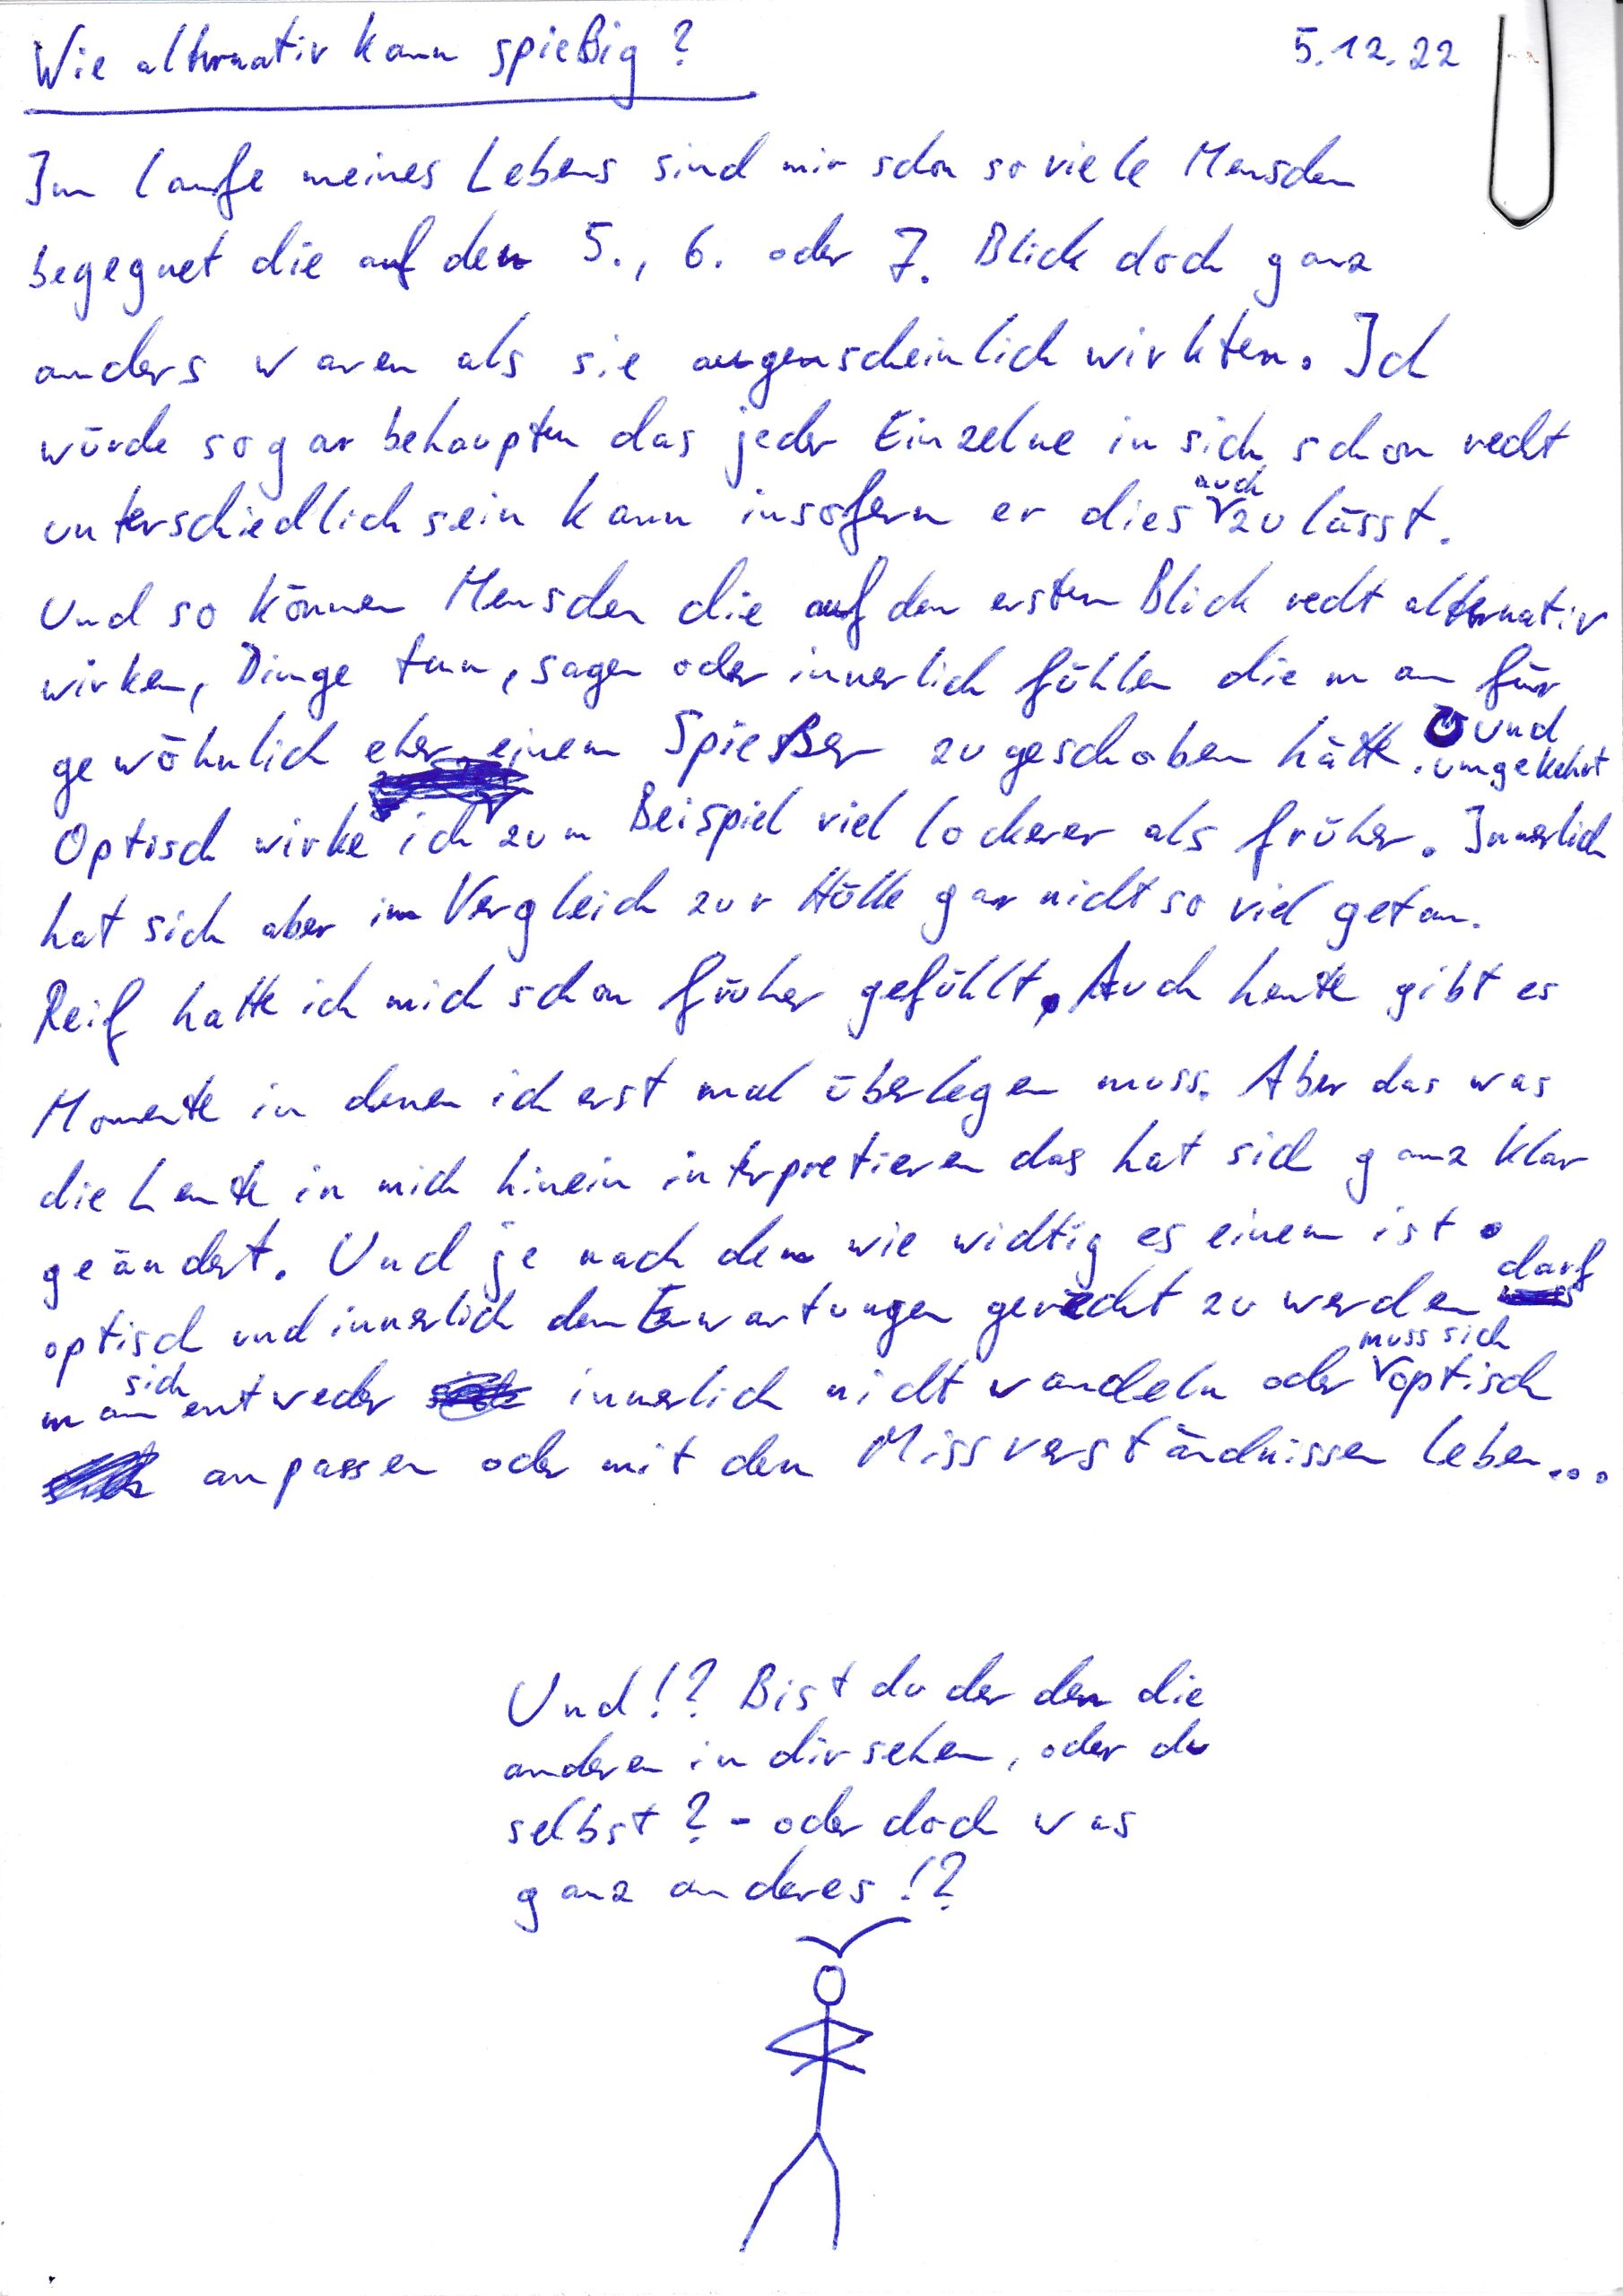 Wie alternativ kann spießig?
5.12.22
Im laufe meines Lebens sind mir schon so viele Menschen
begegnet die auf den 5., 6. oder 7. Blick doch ganz
anders waren als sie augenscheinlich wirkten. Ich
würde sogar behaupten das jeder Einzelne in sich schon recht
unterschiedlich sein kann insofern er dies auch zulässt.
Und so können Menschen die auf den ersten Blick recht alternativ
wirken, Dinge tun, sagen oder innerlich fühlen die man für
gewöhnlich eher einem Spießer zugeschoben hätte und
umgekehrt.
Optisch wirke ich zum Beispiel viel lockerer als früher. Innerlich
hat sich aber im Vergleich zur Hülle gar nicht so viel getan.
Reif hatte ich mich schon früher gefühlt. Auch heute gibt es
Momente in denen ich erst mal überlegen muss. Aber das was
die Leute in mich hinein interpretieren das hat sich ganz klar
geändert. Und je nach dem wie wichtig es einem ist
optisch und innerlich den Erwartungen gerecht zu werden darf
man sich entweder innerlich nicht wandeln oder muss sich optisch
anpassen oder mit den Missverständnissen leben...
Und!? Bist du der den die
anderen in dir sehen, oder du
selbst? - oder doch was
ganz anderes!?